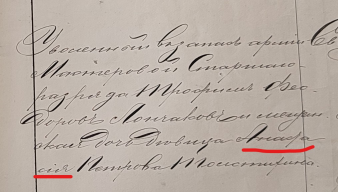 Уволенный въ запасъ арміи
Мастеровой Старшаго
разряда Трофимъ Ѳео
доровъ Лончаковъ и мещан
ская дочь дѣвица Анаѳа
сія Петрова